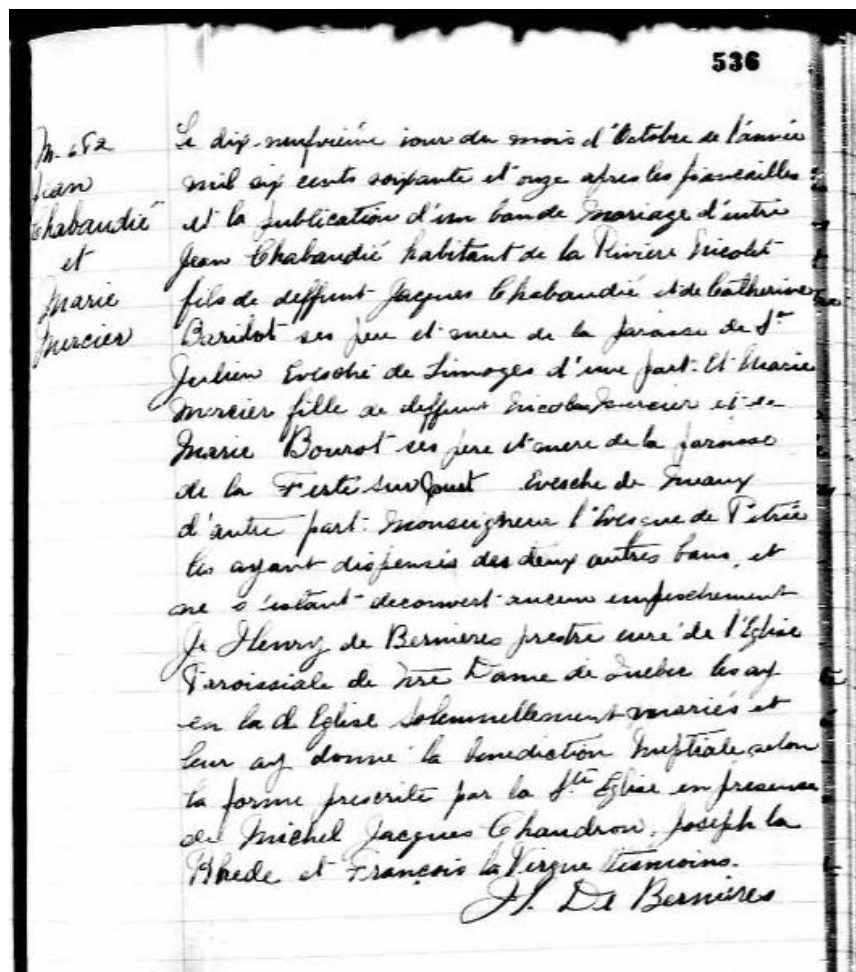 536
M. 682
Jean
Chabaudié
et
Marie
Mercier
Le dix-neufvieme iour du mois d'Octobre de l'année
mil six cents soixante et onze apres les fiancailles
et la publication d'un ban de Mariage d'entre
Jean Chabaudié habitant de la Riviere Nicolet
fils de deffunt Jacques Chabaudié et de Catherine
Baridot ses pere et mere de la paroisse de St
Julien Evesché de Limoges d'une part. Et Marie
Mercier fille de deffunt Nicolas Mercier et de
Marie Bourot ses pere et mere de la paroisse
de la Ferté sur Evesche de Meaux
d'autre part. Monseigneur l'Evesque de Petrée
les ayant dispensés des deux autres bans, et
ne s'estant decouvert aucun empeschement
Je Henry de Bernieres prestre curé de l'Eglise
Paroissiale de Nre Dame de Quebec les ay
en la d Eglise solemnellement mariés et
leur ay donné la benediction Nuptiale selon
la forme prescrite par la Ste Eglise en presence
de Michel Jacques Chaudron, Joseph la
Rhede et François la Vergne tesmoins.
H. De Bernières